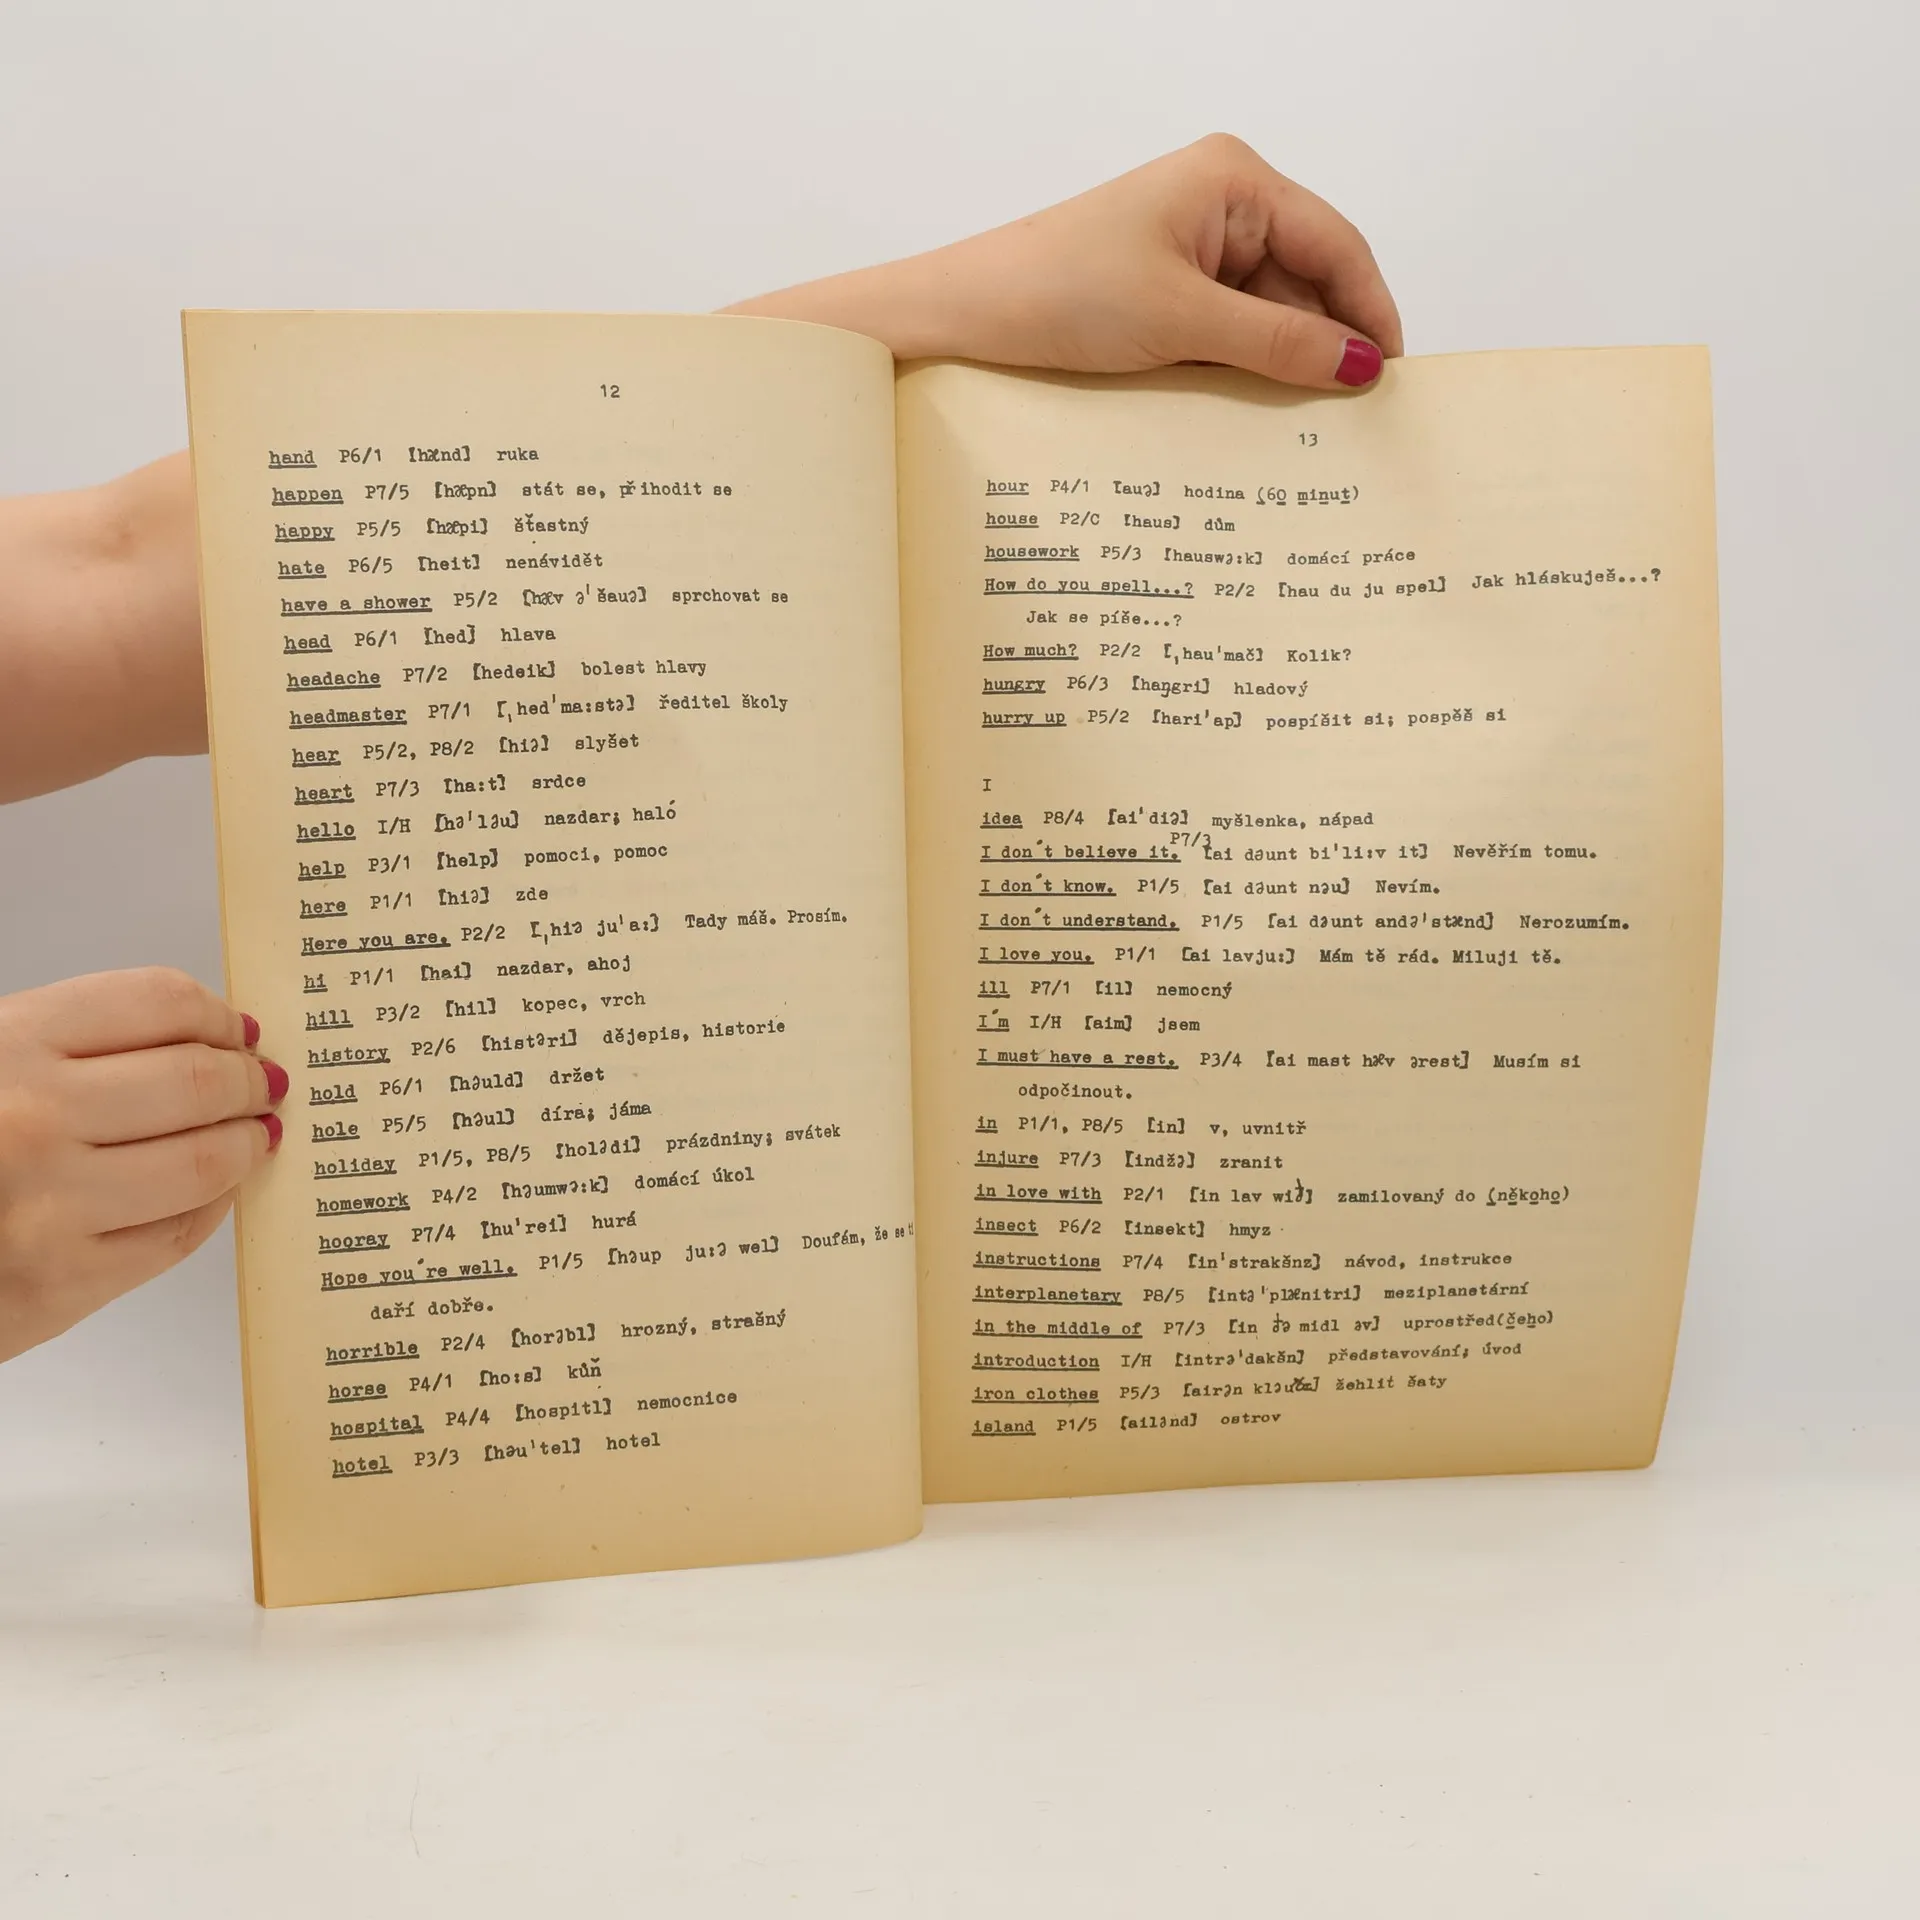 12
hand P6/1 [hænd] ruka
happen P7/5 [hæpn] stát se, přihodit se
happy P5/5 [hæpi] šťastný
hate P6/5 [heit] nenávidět
have a shower P5/2 [hæv ə'šauə] sprchovat se
head P6/1 [hed] hlava
headache P7/2 [hedeik] bolest hlavy
headmaster P7/1 [ˌhed'ma:stə] ředitel školy
hear P5/2, P8/2 [hiə] slyšet
heart P7/3 [ha:t] srdce
hello I/H [hə'ləu] nazdar; haló
help P3/1 [help] pomoci, pomoc
here P1/1 [hiə] zde
Here you are. P2/2 [ˌhiə ju'a:] Tady máš. Prosím.
hi P1/1 [hai] nazdar, ahoj
hill P3/2 [hil] kopec, vrch
history P2/6 [histəri] dějepis, historie
hold P6/1 [həuld] držet
hole P5/5 [həul] díra; jáma
holiday P1/5, P8/5 [holədi] prázdniny; svátek
homework P4/2 [həumwə:k] domácí úkol
hooray P7/4 [hu'rei] hurá
Hope you´re well. P1/5 [həup ju:ə wel] Doufám, že se
daří dobře.
horrible P2/4 [horəbl] hrozný, strašný
horse P4/1 [ho:s] kůň
hospital P4/4 [hospitl] nemocnice
hotel P3/3 [həu'tel] hotel
13
hour P4/1 [auə] hodina (60 minut)
house P2/C [haus] dům
housework P5/3 [hauswə:k] domácí práce
How do you spell...? P2/2 [hau du ju spel] Jak hláskuješ...?
Jak se píše...?
How much? P2/2 [ˌhau'mač] Kolik?
hungry P6/3 [haŋgri] hladový
hurry up P5/2 [hari'ap] pospíšit si; pospěš si
I
idea P8/4 [ai'diə] myšlenka, nápad
I don´t believe it. P7/3 [ai dəunt bi'li:v it] Nevěřím tomu.
I don´t know. P1/5 [ai dəunt nəu] Nevím.
I don´t understand. P1/5 [ai dəunt andə'stænd] Nerozumím.
I love you. P1/1 [ai lavju:] Mám tě rád. Miluji tě.
ill P7/1 [il] nemocný
I´m I/H [aim] jsem
I must have a rest. P3/4 [ai mast hæv ərest] Musím si
odpočinout.
in P1/1, P8/5 [in] v, uvnitř
injure P7/3 [indžə] zranit
in love with P2/1 [in lav wið] zamilovaný do (někoho)
insect P6/2 [insekt] hmyz
instructions P7/4 [in'strakšnz] návod, instrukce
interplanetary P8/5 [intə'plænitri] meziplanetární
in the middle of P7/3 [in ðə midl əv] uprostřed(čeho)
introduction I/H [intrə'dakšn] představování; úvod
iron clothes P5/3 [airən kləuðz] žehlit šaty
island P1/5 [ailənd] ostrov